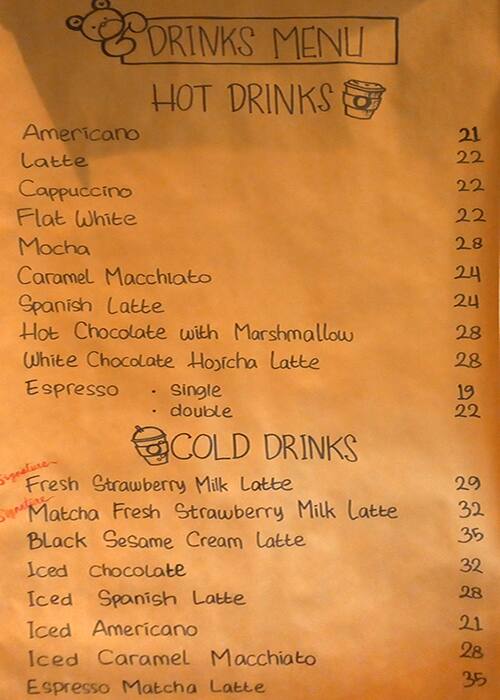 DRINKS MENU
HOT DRINKS
Americano 21
Latte 22
Cappuccino 22
Flat White 22
Mocha 28
Caramel Macchiato 24
Spanish Latte 24
Hot Chocolate with Marshmallow 28
White Chocolate Hojicha Latte 28
Espresso · single 19
· double 22
COLD DRINKS
Signature
Fresh Strawberry Milk Latte 29
Signature
Matcha Fresh Strawberry Milk Latte 32
Black Sesame Cream Latte 35
Iced Chocolate 32
Iced Spanish Latte 28
Iced Americano 21
Iced Caramel Macchiato 28
Espresso Matcha Latte 35